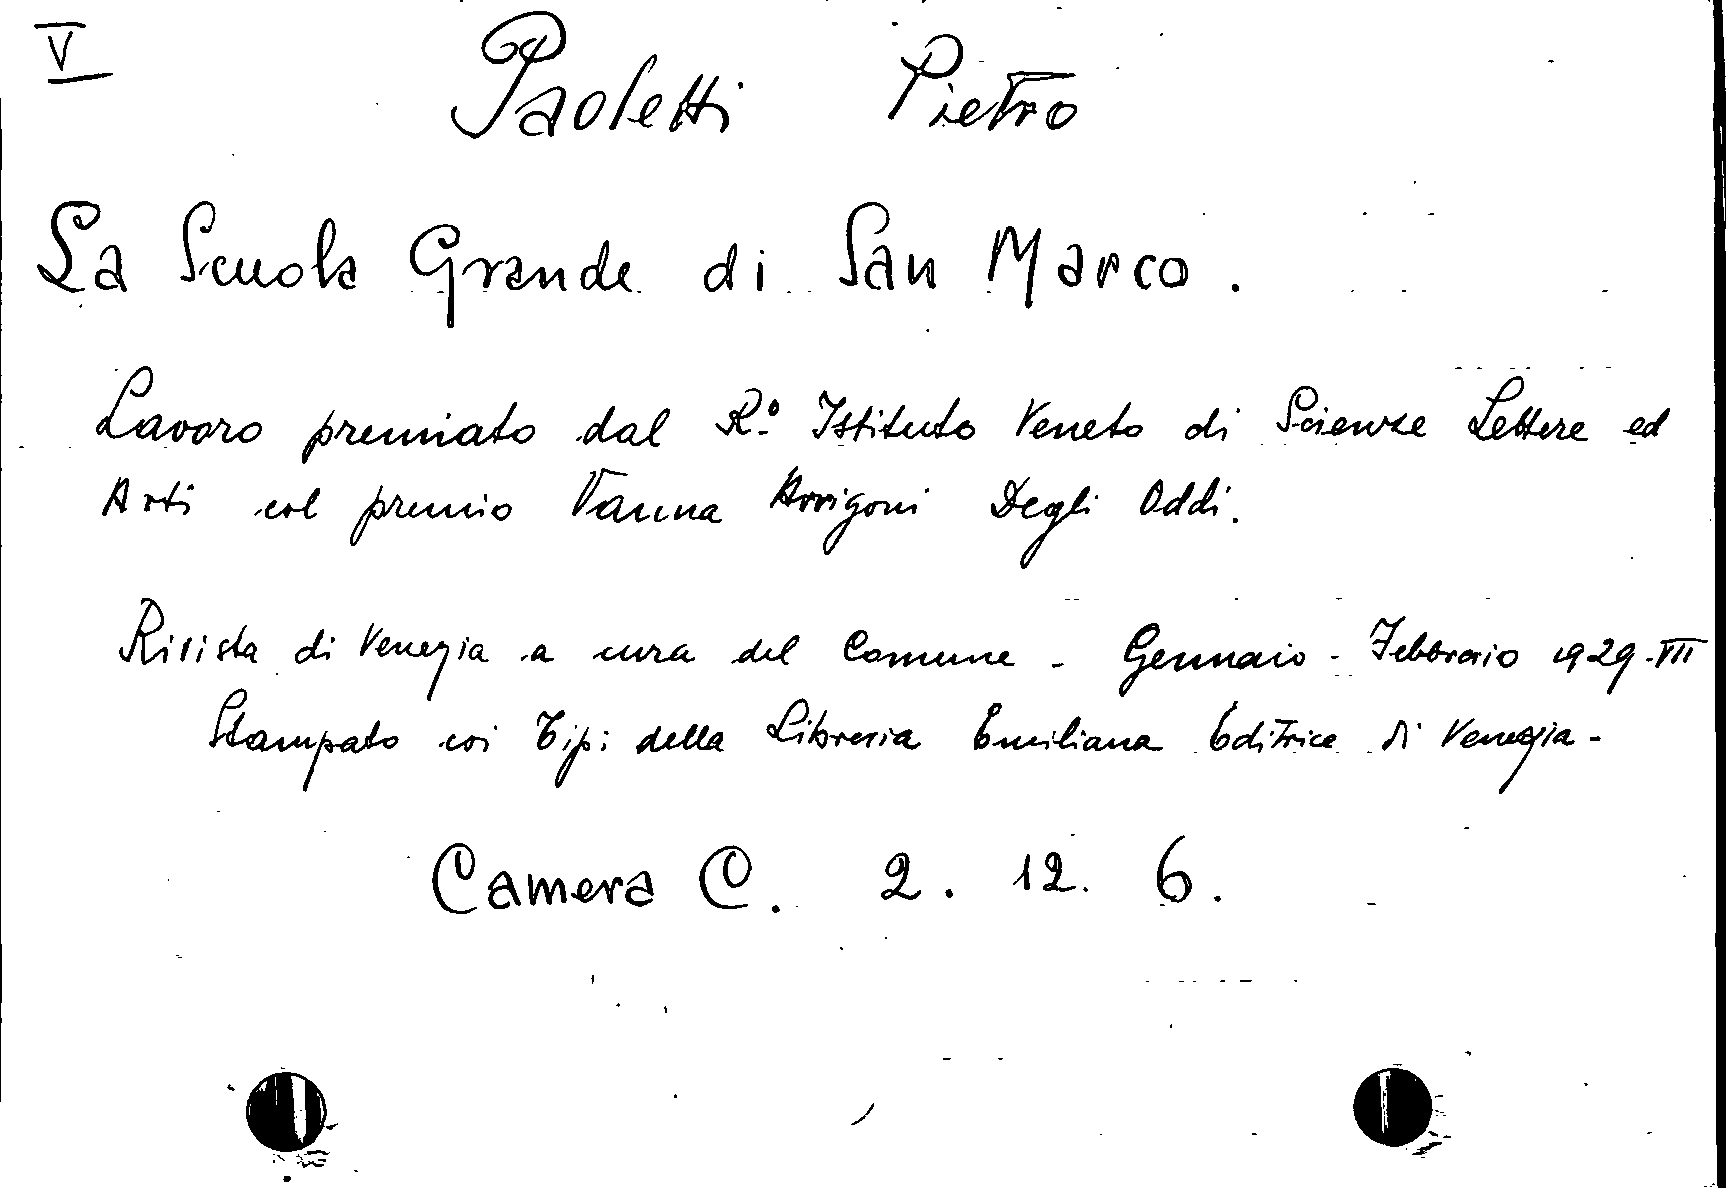 V
Paoletti Pietro
La Scuola Grande di San Marco.
Lavoro premiato dal R.º Istituto Veneto di Scienze Lettere ed
Arti col premio Vanna Arrigoni Degli Oddi.
Rivista di Venezia a cura del Comune - Gennaio - Febbraio 1929-VII
Stampato coi Tipi della Libreria Emiliana Editrice di Venezia -
Camera C. 2. 12. 6.